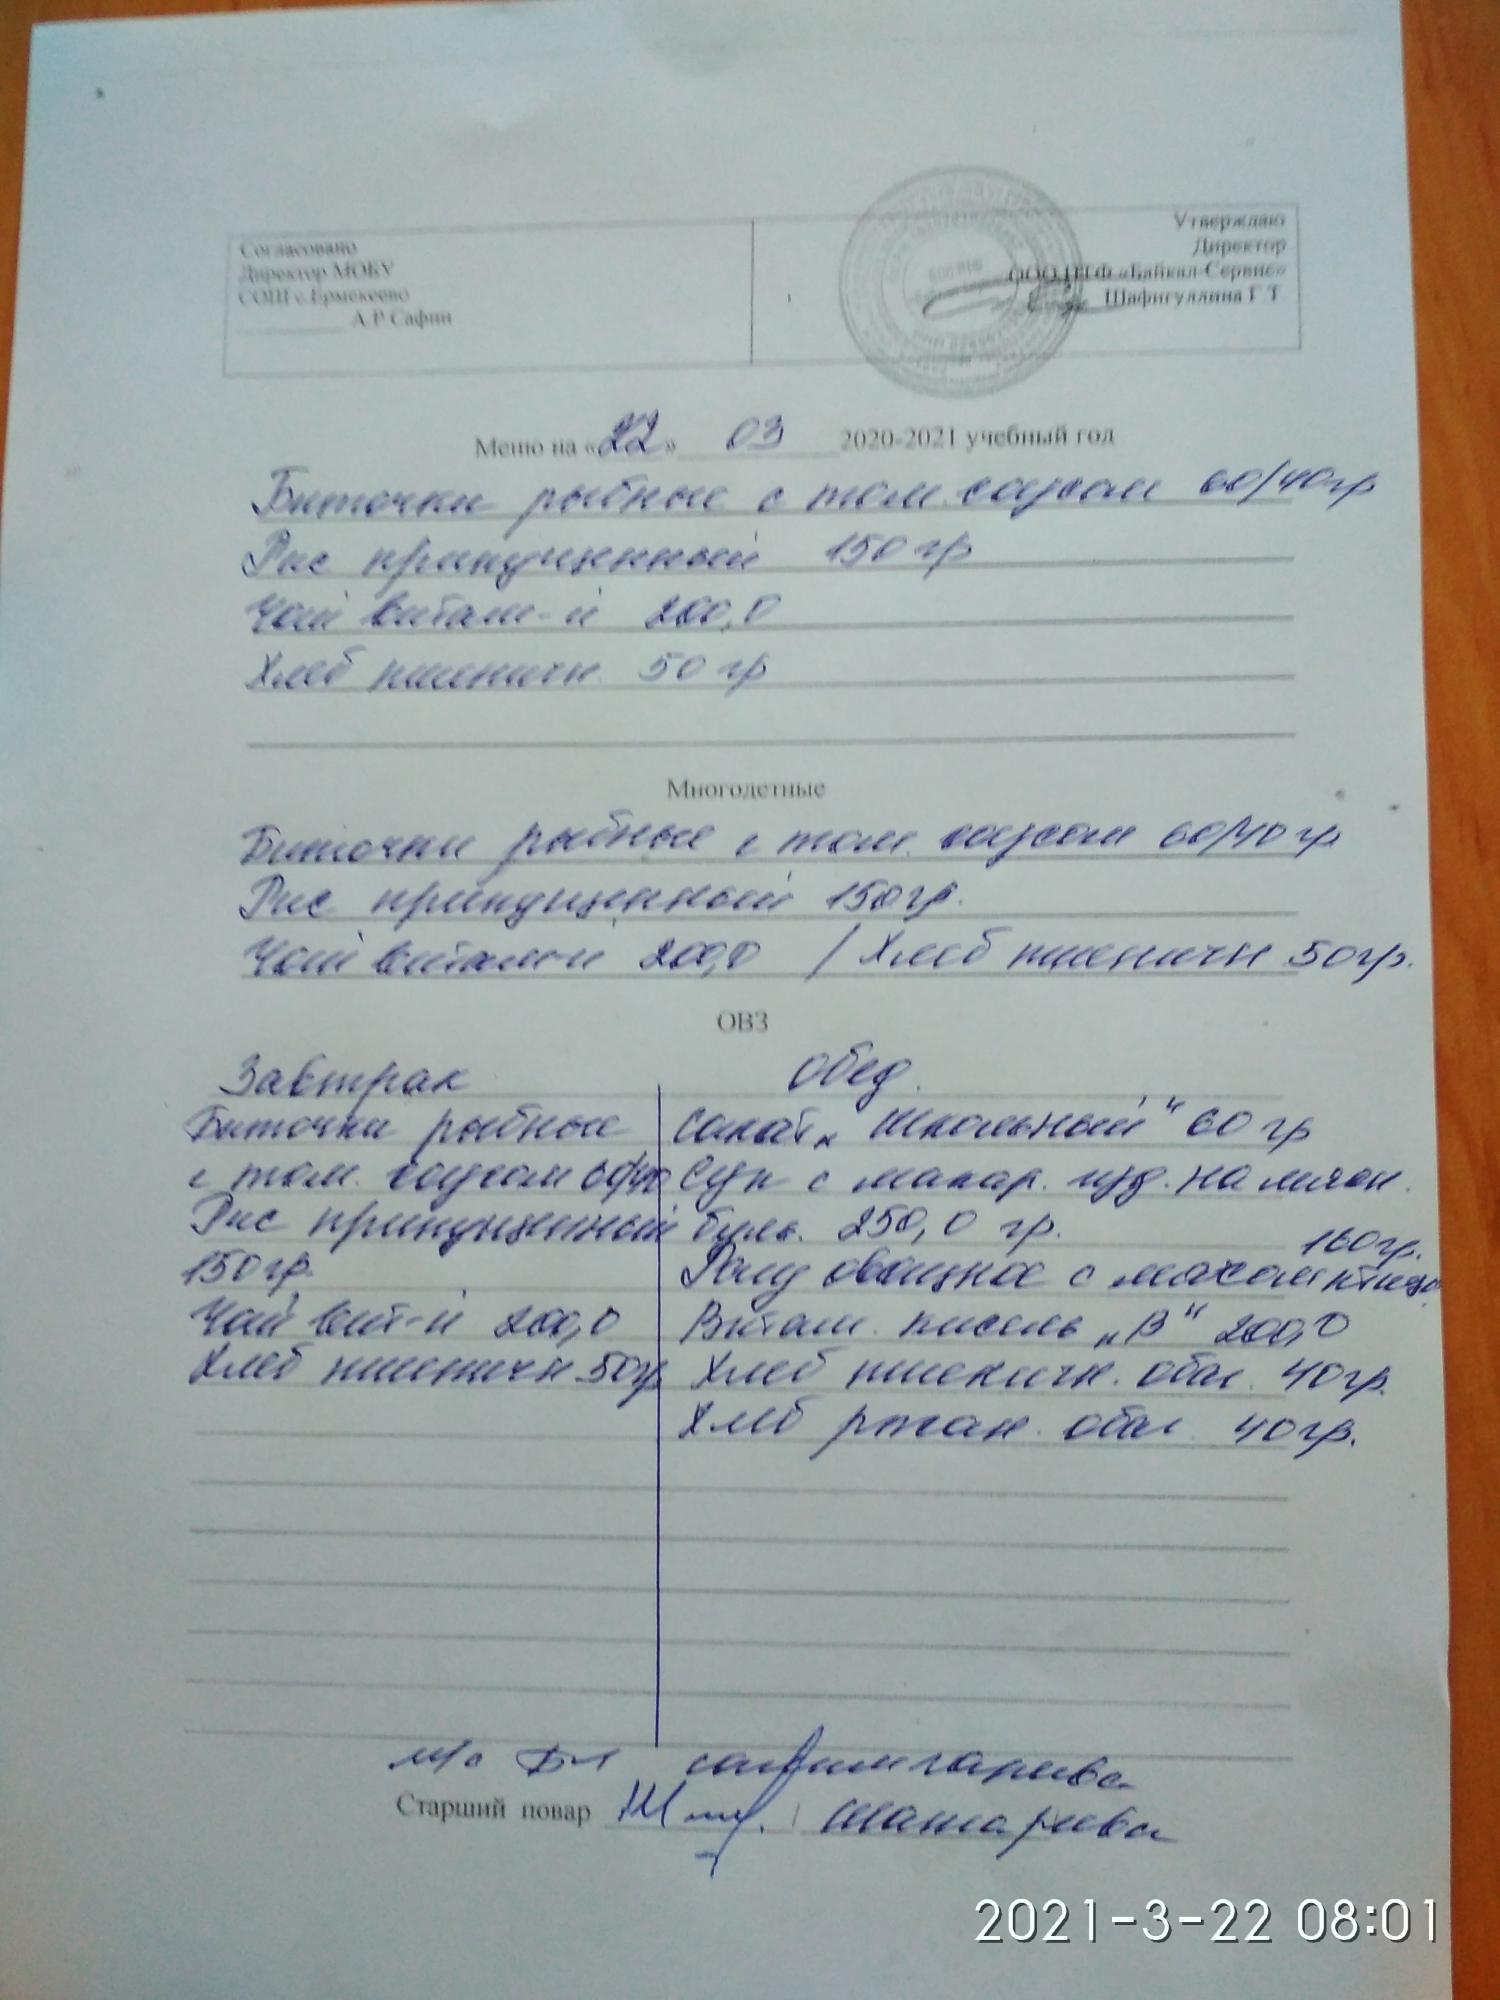 Согласовано
Директор МОБУ
СОШ с.Ермекеево
А.Р.Сафин
Утверждаю
Директор
«Байкал-Сервис»
Шафигуллина Г.Т
Меню на «22» 03 2020-2021 учебный год
Биточки рыбные с том. соусом 60/40гр
Рис припущенный 150 гр
Чай витам-й 200,0
Хлеб пшеничн. 50 гр
Многодетные
Биточки рыбные с том. соусом 60/40 гр
Рис припущенный 150гр.
Чай витам-й 200,0 / Хлеб пшеничн 50гр.
ОВЗ
Завтрак
Биточки рыбные
с том. соусом 60/40
Рис припущенный
150гр.
Чай вит-й 200,0
Хлеб пшеничн 50гр
Обед.
Салат „Школьный“ 60 гр
Суп с макар. изд. на мясн.
буль. 250,0 гр.
160гр.
Рагу овощное с мясом птицы
Витам. кисель „В“ 200,0
Хлеб пшеничн. обог. 40гр.
Хлеб ржан. обог. 40гр.
м/с
Старший повар
2021-3-22 08:01